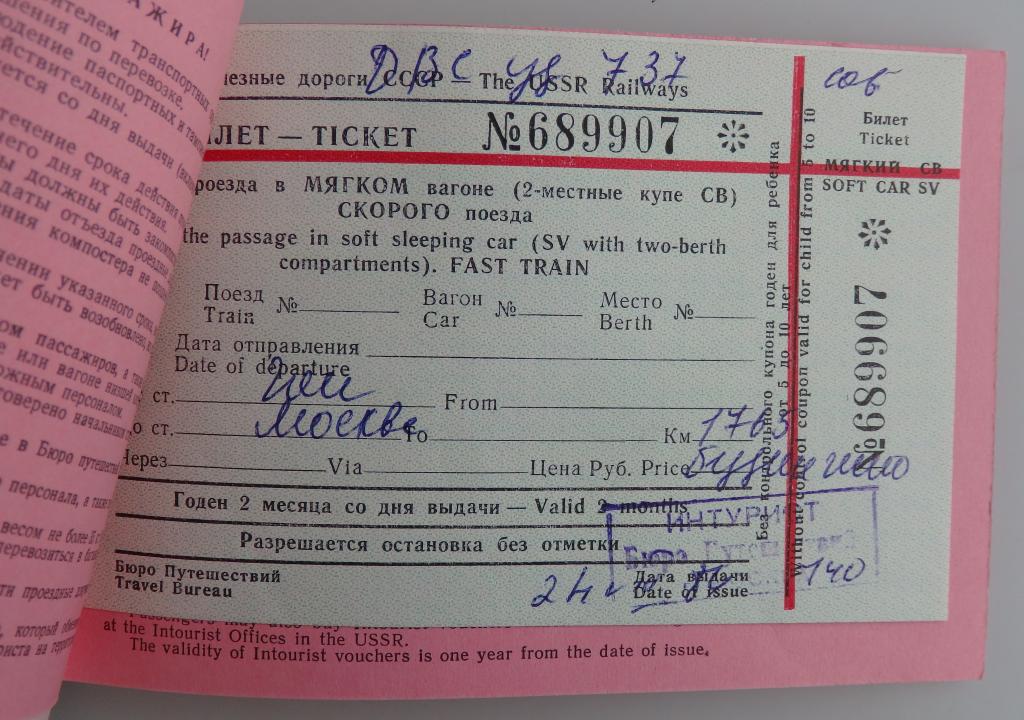 АЖИРА!
ителем транспортных
шения по перевозке.
юдение паспортных и
ействительны.
ется со дня выдачи
течение срока действия
него дня их действия.
ы должны быть
даты отъезда
ения компостера не
ении указанного срока,
жет быть возобновлено,
ом пассажиров, а
е или вагоне низшей
ожным персоналом.
товерено
е в Бюро
о персонала, а также
весом не более
перевозиться в
проездные
который
езные дороги СССР — The USSR Railways
ДВС 737
ЛЕТ — TICKET №689907
роезда в МЯГКОМ вагоне (2-местные купе СВ)
СКОРОГО поезда
the passage in soft sleeping car (SV with two-berth
compartments). FAST TRAIN
Поезд № Вагон № Место №
Train Car Berth
Дата отправления
Date of departure
ст. From
о ст. Москва To Км 1765
Через Via Цена Руб. Price
Годен 2 месяца со дня выдачи — Valid 2 months
Разрешается остановка без отметки
Бюро Путешествий
Travel Bureau
Дата выдачи
Date of issue
24
140
ИНТУРИСТ
Бюро Путешествий
Без контрольного купона годен для ребенка
от 5 до 10 лет
Without control coupon valid for child from 5 to 10
соб
Билет
Ticket
МЯГКИЙ СВ
SOFT CAR SV
№689907
at the Intourist Offices in the USSR.
The validity of Intourist vouchers is one year from the date of issue.